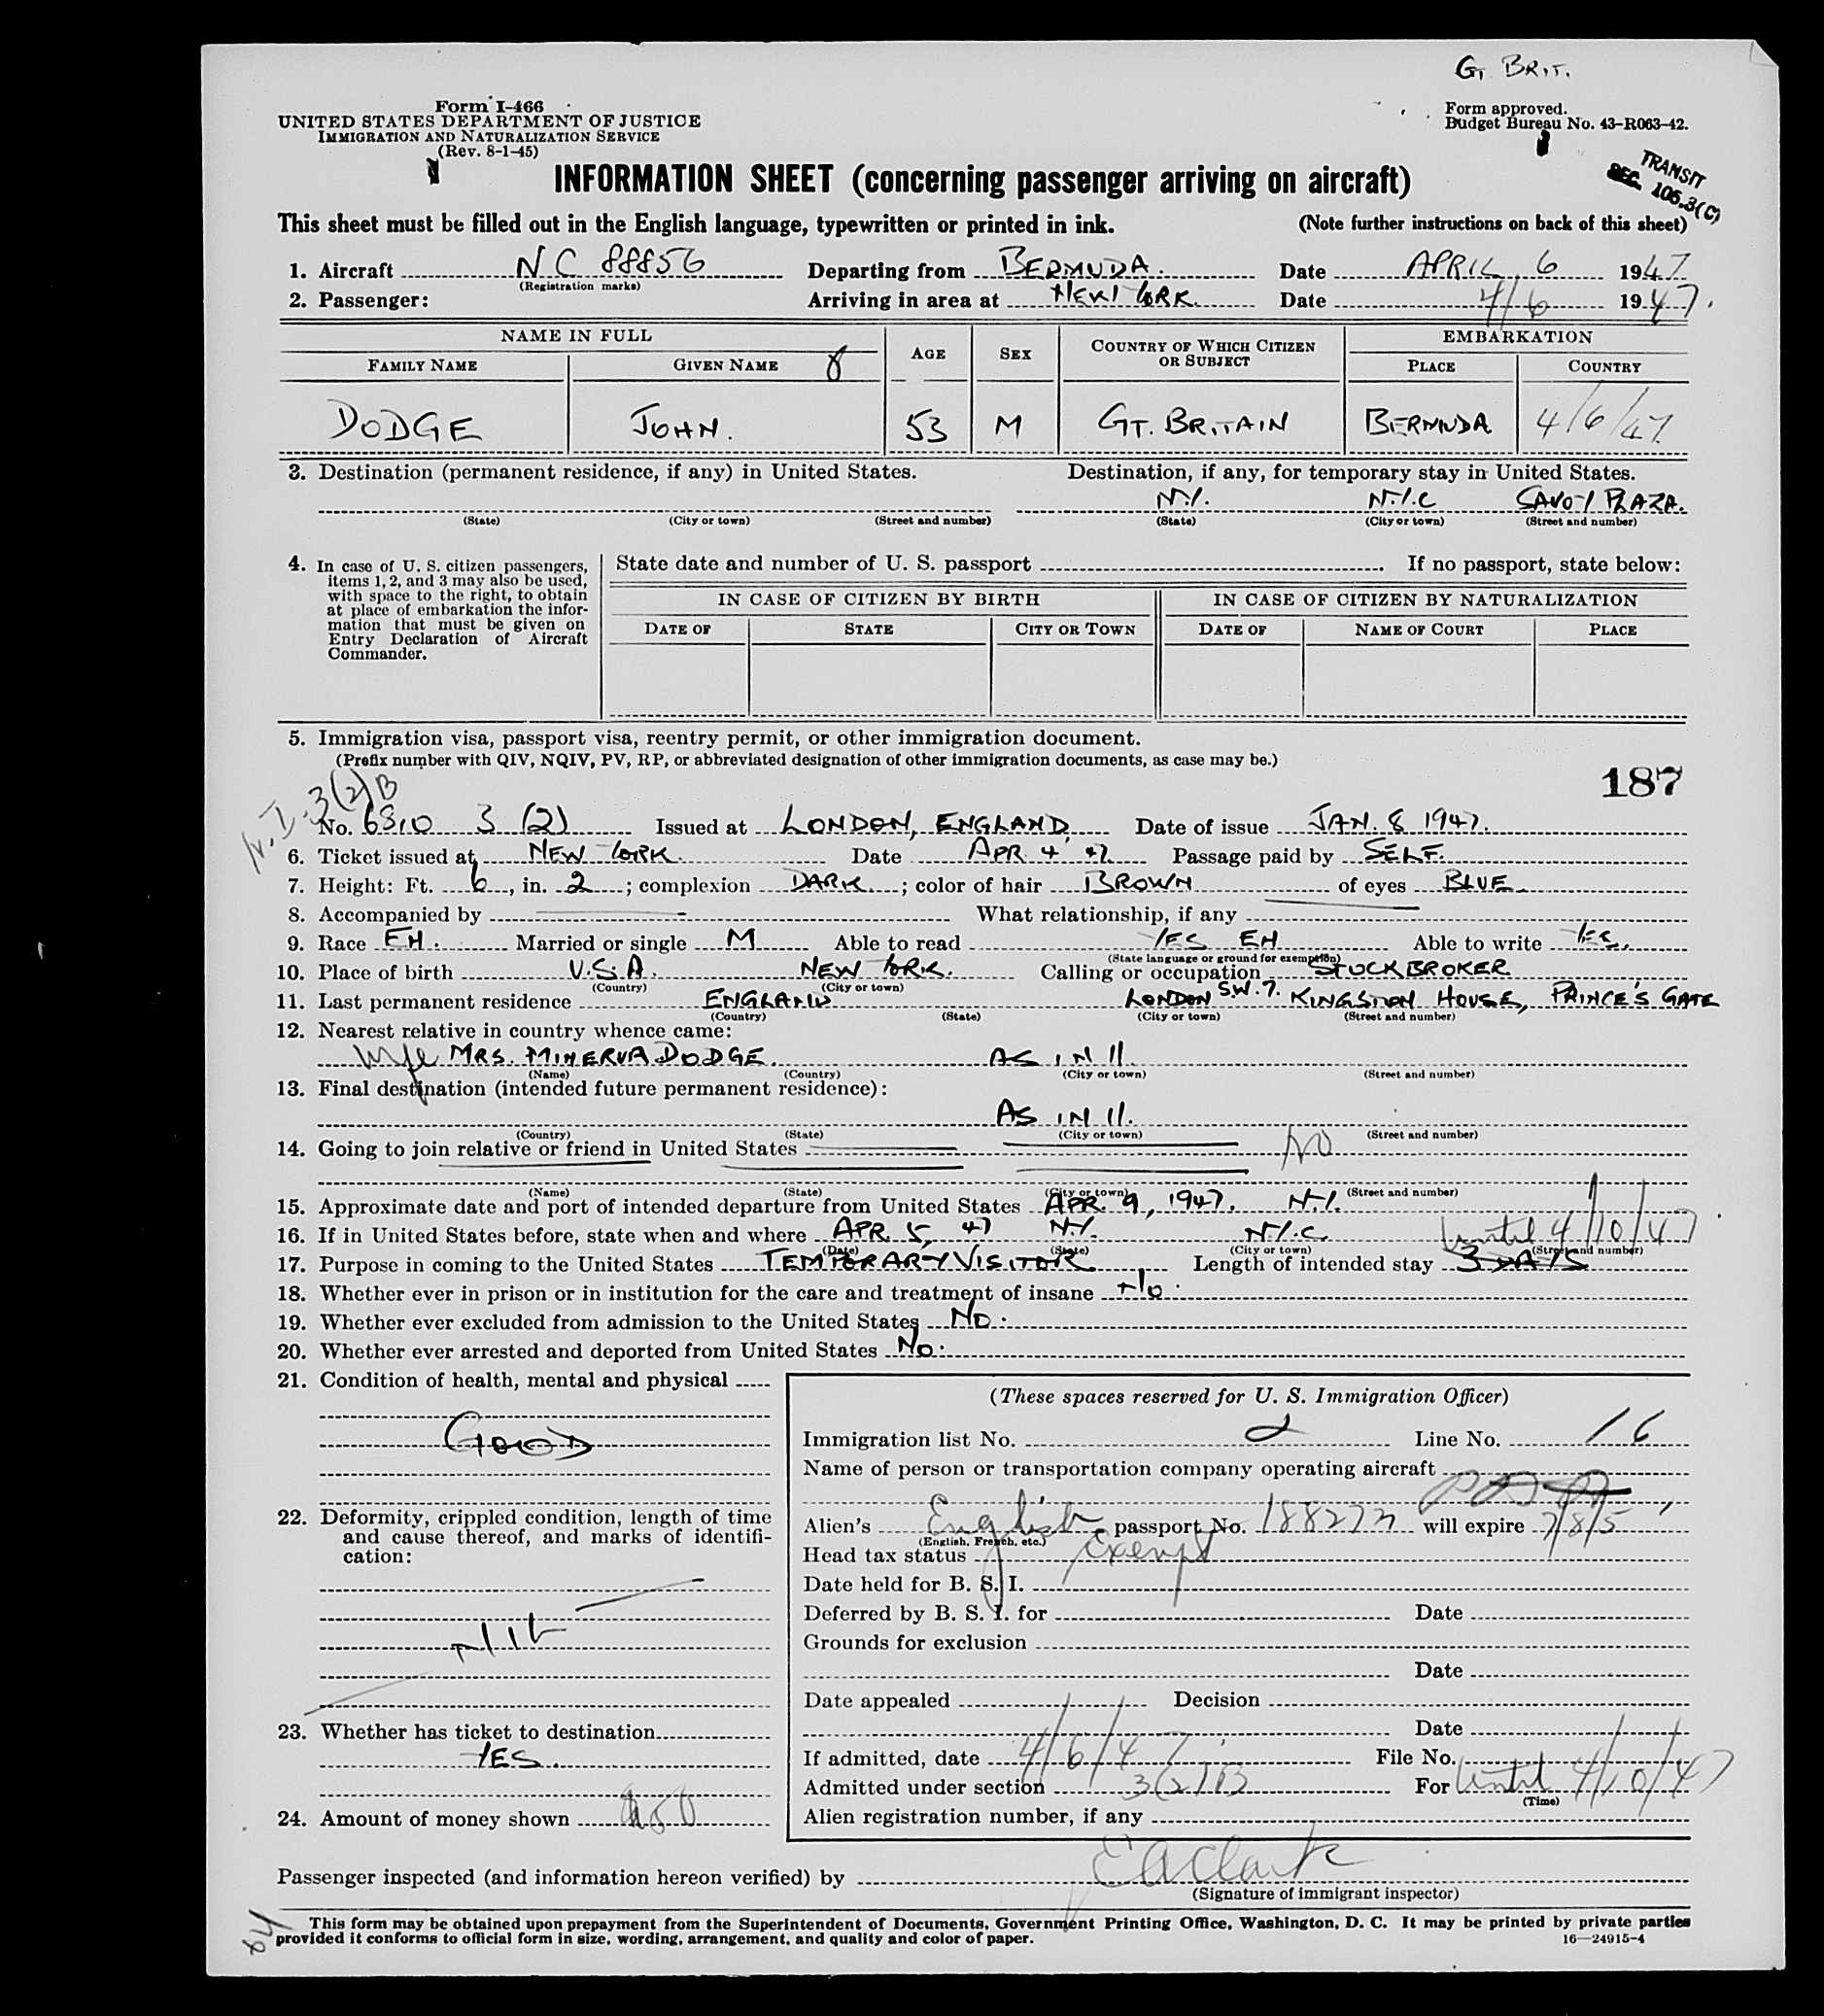 GT. BRIT.
Form I-466
UNITED STATES DEPARTMENT OF JUSTICE
IMMIGRATION AND NATURALIZATION SERVICE
(Rev. 8-1-45)
Form approved.
Budget Bureau No. 43-R063-42.
TRANSIT
SEC. 106.3(C)
INFORMATION SHEET (concerning passenger arriving on aircraft)
This sheet must be filled out in the English language, typewritten or printed in ink. (Note further instructions on back of this sheet)
1. Aircraft NC 88856 Departing from BERMUDA. Date APRIL 6 1947
(Registration marks)
2. Passenger: Arriving in area at NEW YORK. Date 4/6 1947.
NAME IN FULL AGE SEX COUNTRY OF WHICH CITIZEN OR SUBJECT EMBARKATION
FAMILY NAME GIVEN NAME PLACE COUNTRY
DODGE JOHN. 53 M GT. BRITAIN BERMUDA 4/6/47
3. Destination (permanent residence, if any) in United States. Destination, if any, for temporary stay in United States.
N.Y. N.Y.C SAVOY PLAZA.
(State) (City or town) (Street and number) (State) (City or town) (Street and number)
4. In case of U. S. citizen passengers, items 1, 2, and 3 may also be used, with space to the right, to obtain at place of embarkation the information that must be given on Entry Declaration of Aircraft Commander.
State date and number of U. S. passport If no passport, state below:
IN CASE OF CITIZEN BY BIRTH IN CASE OF CITIZEN BY NATURALIZATION
DATE OF STATE CITY OR TOWN DATE OF NAME OF COURT PLACE
5. Immigration visa, passport visa, reentry permit, or other immigration document.
(Prefix number with QIV, NQIV, PV, RP, or abbreviated designation of other immigration documents, as case may be.)
187
3(2)B
No. 6810 3 (2) Issued at LONDON, ENGLAND Date of issue JAN. 8 1947.
6. Ticket issued at NEW YORK. Date APR. 4 '47. Passage paid by SELF.
7. Height: Ft. 6, in. 2; complexion DARK; color of hair BROWN of eyes BLUE.
8. Accompanied by What relationship, if any
9. Race EH. Married or single M Able to read YES EH Able to write YES.
(State language or ground for exemption)
10. Place of birth U.S.A. NEW YORK. Calling or occupation STOCKBROKER
(Country) (City or town)
11. Last permanent residence ENGLAND LONDON S.W.7. KINGSTON HOUSE, PRINCE'S GATE
(Country) (State) (City or town) (Street and number)
12. Nearest relative in country whence came:
Wife MRS. MINERVA DODGE. AS IN 11.
(Name) (Country) (City or town) (Street and number)
13. Final destination (intended future permanent residence):
AS IN 11.
(Country) (State) (City or town) (Street and number)
14. Going to join relative or friend in United States No
(Name) (State) (City or town) (Street and number)
15. Approximate date and port of intended departure from United States APR. 9, 1947. N.Y.
16. If in United States before, state when and where APR. 5, 47 N.Y. N.Y.C. until 4/10/47
(Date) (State) (City or town) (Street and number)
17. Purpose in coming to the United States TEMPORARY VISITOR Length of intended stay 3 DAYS
18. Whether ever in prison or in institution for the care and treatment of insane No.
19. Whether ever excluded from admission to the United States No.
20. Whether ever arrested and deported from United States No.
21. Condition of health, mental and physical
GOOD
22. Deformity, crippled condition, length of time and cause thereof, and marks of identification:
NIL
23. Whether has ticket to destination
YES.
24. Amount of money shown
(These spaces reserved for U. S. Immigration Officer)
Immigration list No. 2 Line No. 16
Name of person or transportation company operating aircraft
Alien's English passport No. 188273 will expire 7/8/51
(English, French, etc.)
Head tax status Exempt
Date held for B. S. I.
Deferred by B. S. I. for Date
Grounds for exclusion
Date
Date appealed Decision
Date
If admitted, date 4/6/47 File No.
Admitted under section 3(2)B For Until 4/10/47
(Time)
Alien registration number, if any
Passenger inspected (and information hereon verified) by EAClark
(Signature of immigrant inspector)
This form may be obtained upon prepayment from the Superintendent of Documents, Government Printing Office, Washington, D. C. It may be printed by private parties
provided it conforms to official form in size, wording, arrangement, and quality and color of paper. 16—24915-4